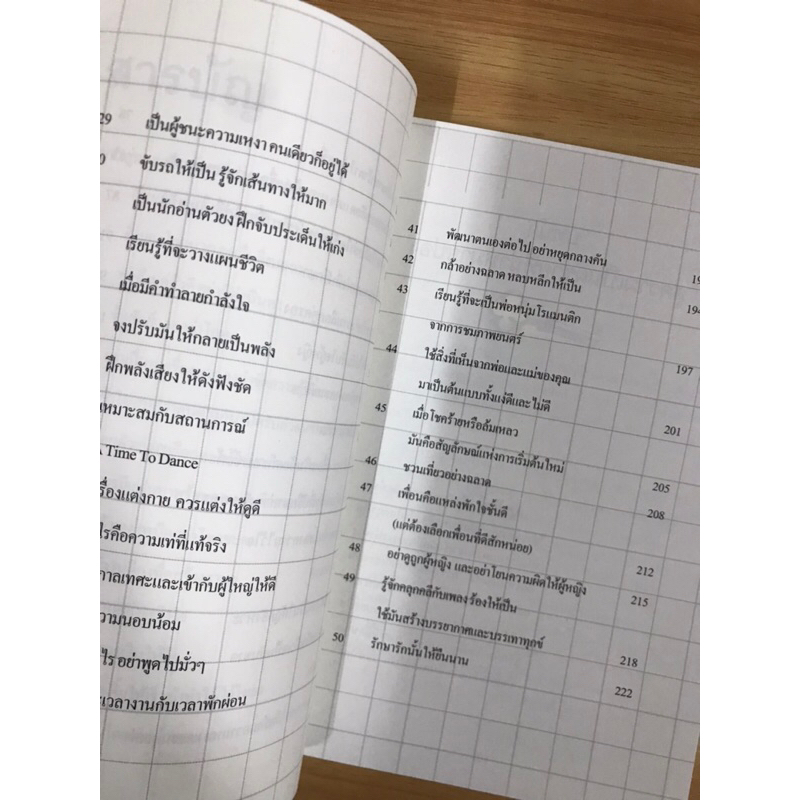 29 เป็นผู้ชนะความเหงา คนเดียวก็อยู่ได้
0 ขับรถให้เป็น รู้จักเส้นทางให้มาก
เป็นนักอ่านตัวยง ฝึกจับประเด็นให้เก่ง
เรียนรู้ที่จะวางแผนชีวิต
เมื่อมีคำทำลายกำลังใจ
จงปรับมันให้กลายเป็นพลัง
ฝึกพลังเสียงให้ดังฟังชัด
เหมาะสมกับสถานการณ์
Time To Dance
รื่องแต่งกาย ควรแต่งให้ดูดี
ไรคือความเท่ที่แท้จริง
กาลเทศะและเข้ากับผู้ใหญ่ให้ดี
วามนอบน้อม
ไร อย่าพูดไปมั่วๆ
ะเวลางานกับเวลาพักผ่อน
41 พัฒนาตนเองต่อไป อย่าหยุดกลางคัน 19
42 กล้าอย่างฉลาด หลบหลีกให้เป็น 194
43 เรียนรู้ที่จะเป็นพ่อหนุ่มโรแมนติก
จากการชมภาพยนตร์ 197
44 ใช้สิ่งที่เห็นจากพ่อและแม่ของคุณ
มาเป็นต้นแบบทั้งแง่ดีและไม่ดี 201
45 เมื่อโชคร้ายหรือล้มเหลว
มันคือสัญลักษณ์แห่งการเริ่มต้นใหม่ 205
46 ชวนเที่ยวอย่างฉลาด 208
47 เพื่อนคือแหล่งพักใจชั้นดี
(แต่ต้องเลือกเพื่อนที่ดีสักหน่อย) 212
48 อย่าดูถูกผู้หญิง และอย่าโยนความผิดให้ผู้หญิง 215
49 รู้จักคลุกคลีกับเพลง ร้องให้เป็น
ใช้มันสร้างบรรยากาศและบรรเทาทุกข์ 218
50 รักษารักนั้นให้ยืนนาน 222